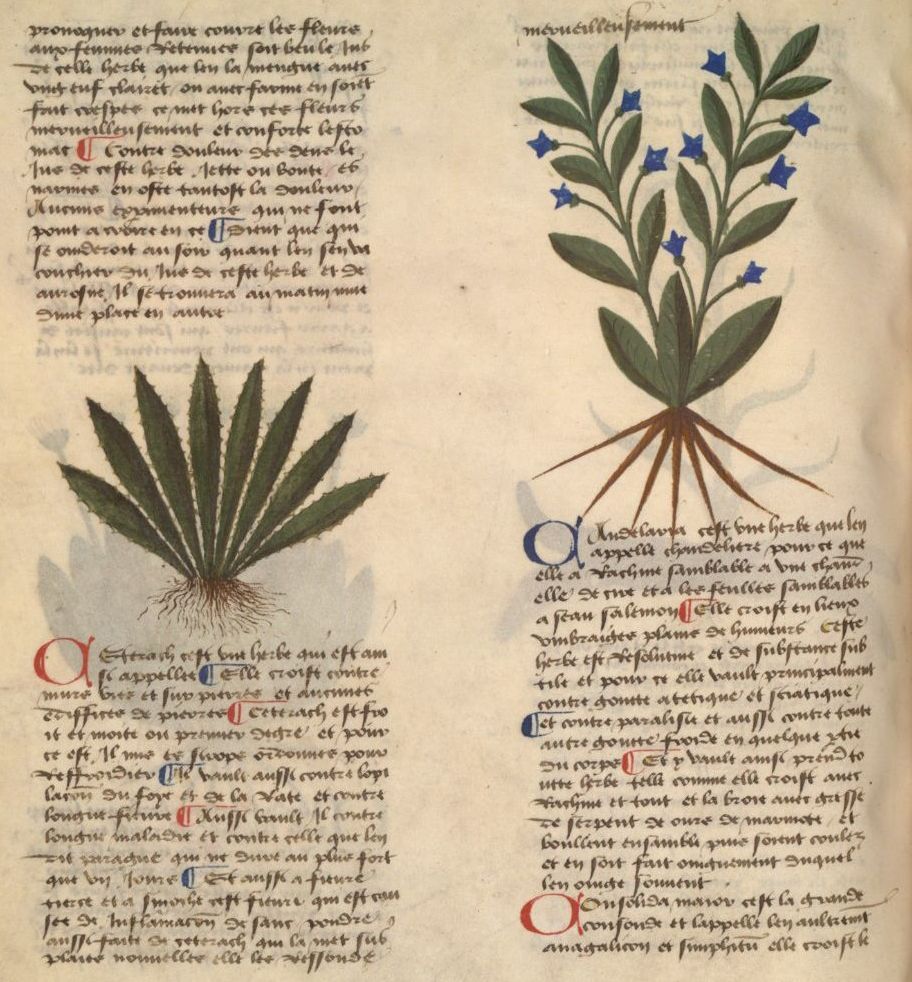 prouoquer et faire courre les fleurs
aux femmes Retenues soit beu le Jus
de celle herbe que len la mengue auec
vng euf clairet ou auec farine en soiet
fait crespes ce met hors ces fleurs
merueilleusement et conforte lesto
mac ¶ Contre douleur des dens le
Jus de ceste herbe Jette ou boute es
narines en oste tantost la douleur
Aucuns expimenteurs qui ne sont
point a croire en ce ¶ Dient que qui
se oinderoit au soir quant len sen va
couchier du Jus de ceste herbe et de
aurosne Il se trouuera au matin mue
dune place en autre
Ceterach cest vne herbe qui est ain
si appellee ¶ Elle croist contre
murs vies et sur pierres et aucunes
ediffices de pierres ¶ Ceterach est fro
it et moite ou premier degre et pour
ce est Il mis es sirops ordonnes pour
Reffroidier ¶ Il vault aussi contre lopi
lacon du foye et de la Rate et contre
longue fieure ¶ Aussi vault Il contre
longue maladie et contre celle que len
dit qui ne dure au plus fort
que vij Jours ¶ Et aussi a fieure
tierce et a sinoche cest fieure qui est cau
see de Inflamacon de sanc pouldre
aussi faite de ceterach qui la met sus
plaies nouuelles elle les Ressoude
merueilleusement
Candelaria cest vne herbe que len
appelle chandeliere pource que
elle a Rachine samblable a vne chan
elle de cire et a les feuilles samblables
a seau salemon ¶ Elle croist en lieux
vmbraiges plains de humeurs Ceste
herbe est Resolutiue et de substance sub
tile et pour ce elle vault principalment
contre goutte atetique et sciatique
¶ et contre paralisie et aussi contre toute
autre goutte froide en quelque ptie
du corps ¶ Et y vault ainsi prend to
utte herbe telle comme elle croist auec
Rachine et tout et la broie auec gresse
de serpent de ours de marmote et
boullent ensamble puis soient coulez
et en soit fait oinguement duquel
len oinge souuent
Consolida maior cest la grande
consoude et lappelle len aultremt
anagalicon et simphitu elle croist le